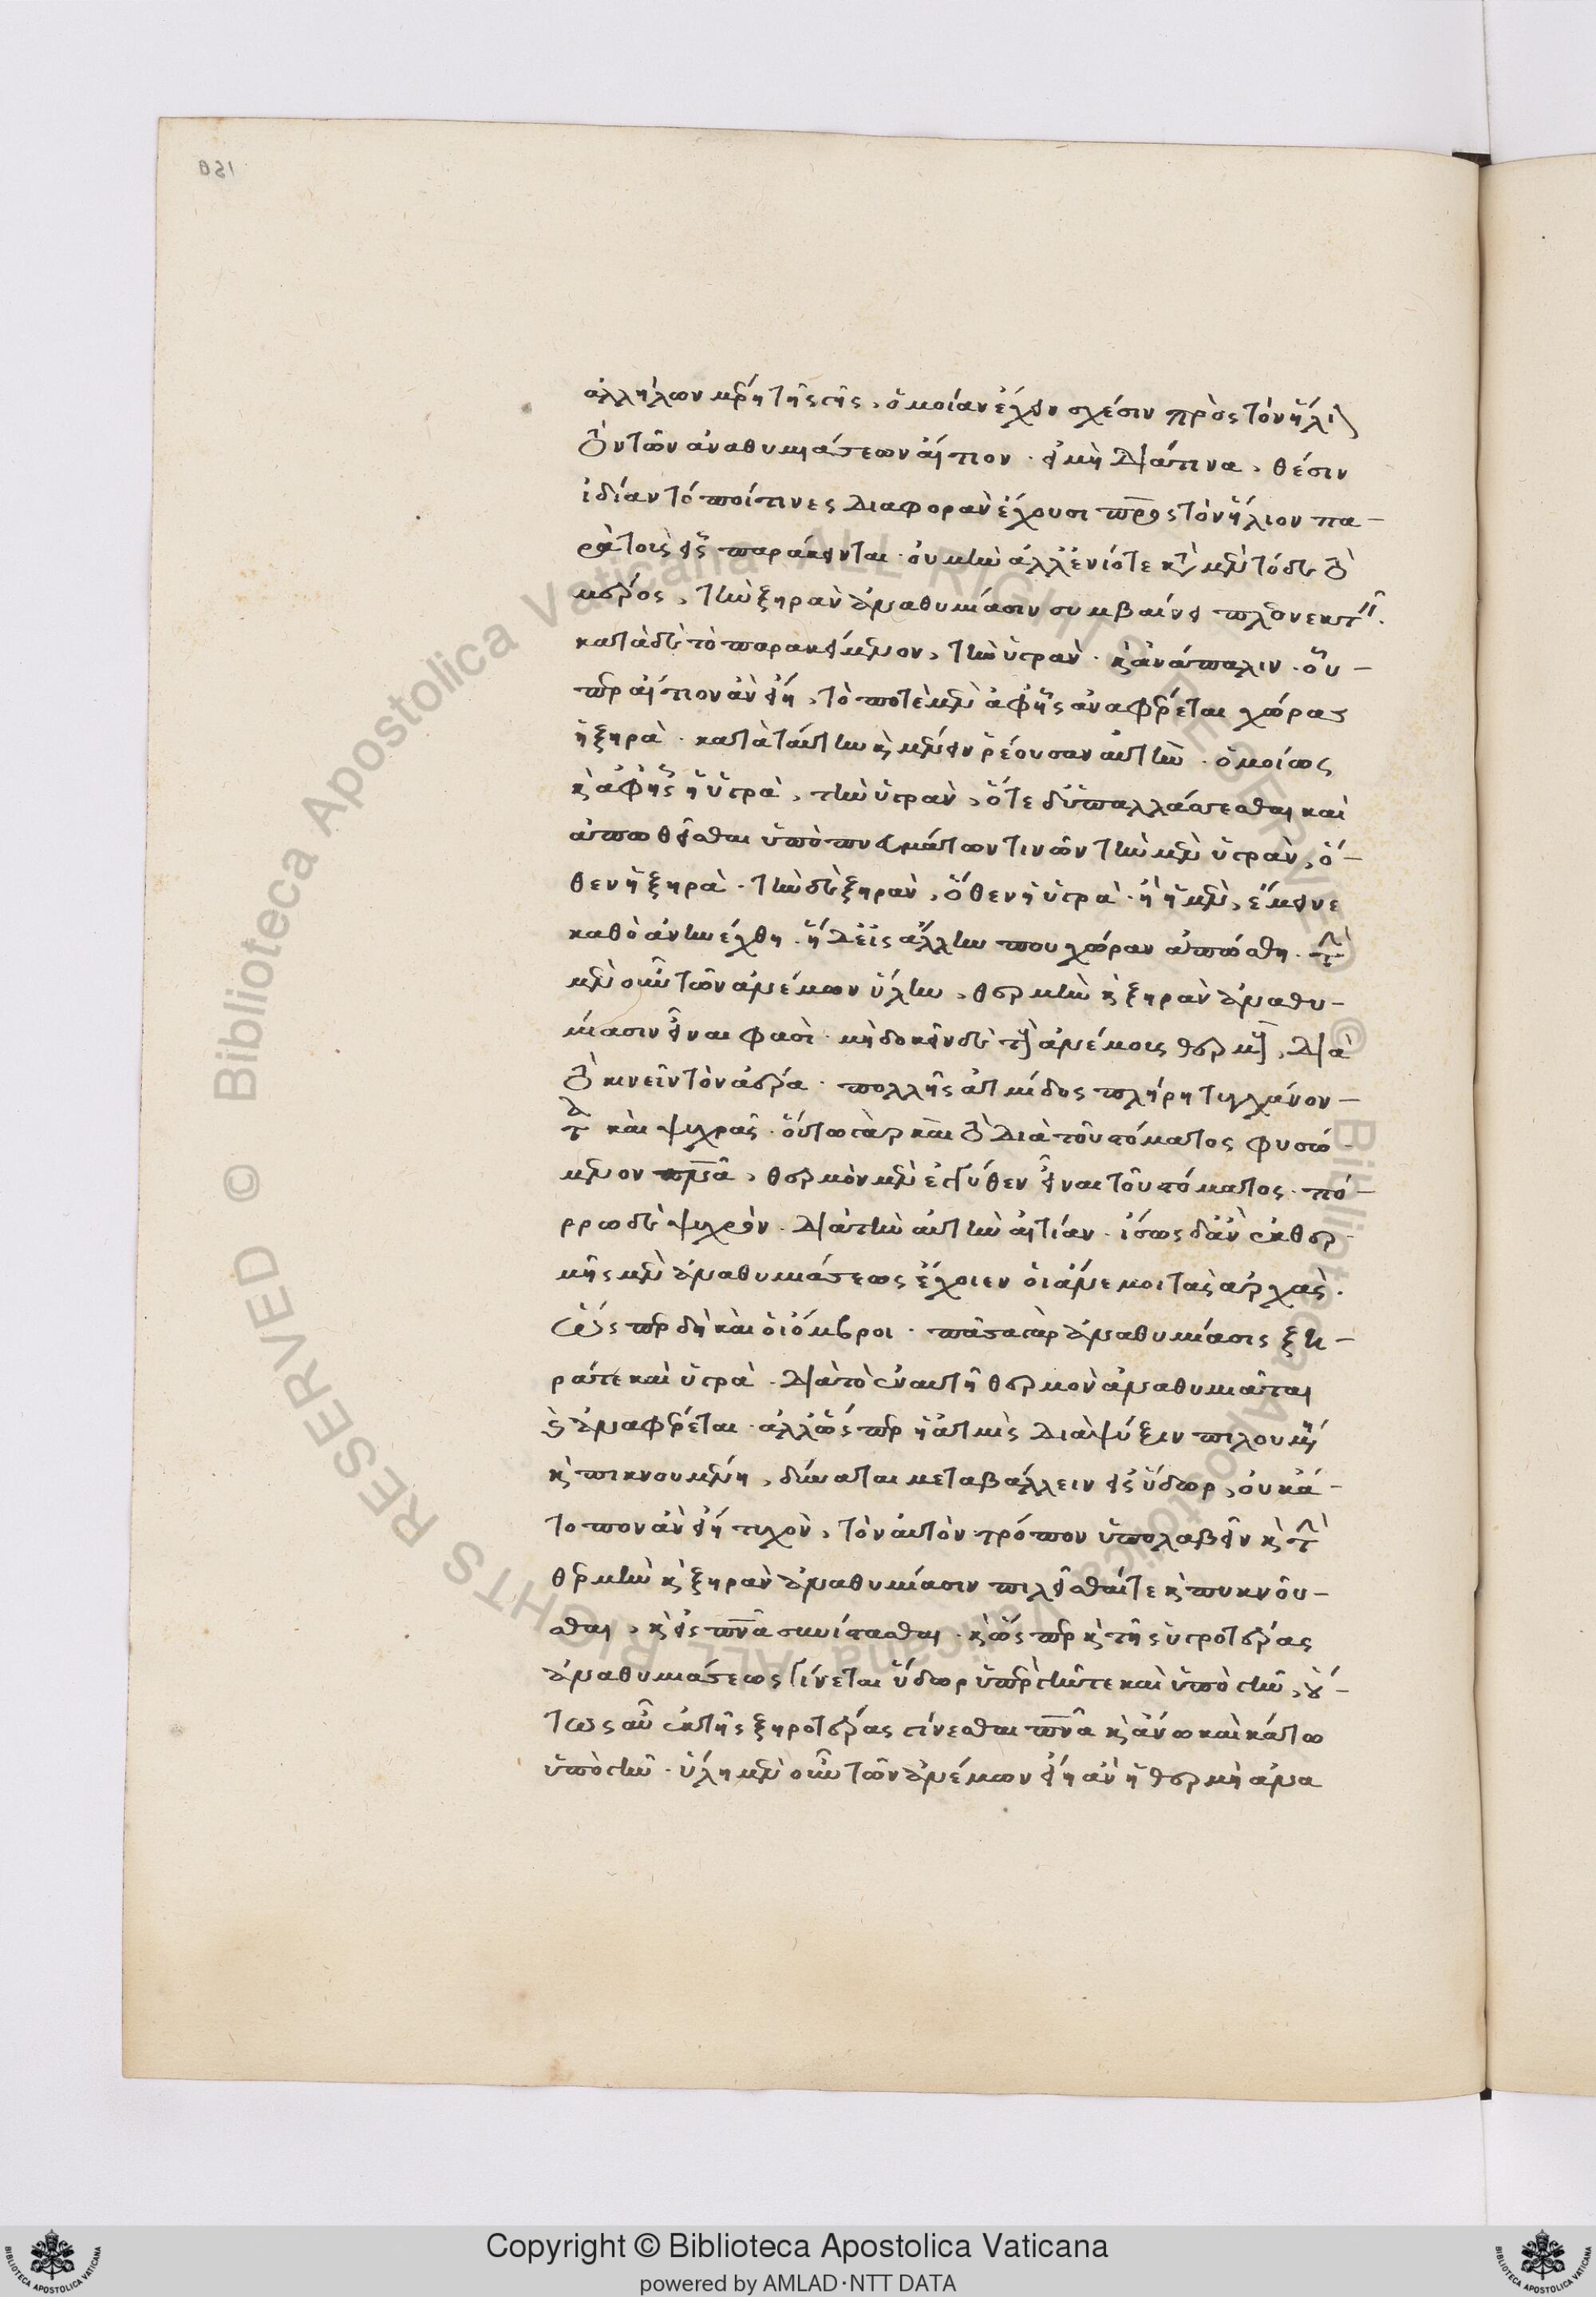 ἀλλήλων μέρη τῆς γῆς, ὁμοίαν ἔχειν σχέσιν πρὸς τὸν ἥλι
ὸν τῶν ἀναθυμιάσεων αἴτιον. εἰ μὴ διά τινα, θέσιν
ἰδίαν τόποί τινες διαφορὰν ἔχουσι πρὸς τὸν ἥλιον πα-
ρὰ τοῖς οἷς παράκεινται. οὐ μὴν ἀλλ' ἐνίοτε κατὰ μὲν τόδε τὸ
μέρος, τὴν ξηρὰν ἀναθυμίασιν συμβαίνει πλεονεκτεῖ.
κατὰ δὲ τὸ παρακείμενον, τὴν ὑγράν. καὶ ἀνάπαλιν. οὗ-
περ αἴτιον ἂν εἴη, τὸ ποτὲ μὲν ἀφ' ἧς ἀναφέρεται χώρας
ἡ ξηρὰ. κατὰ ταύτην καὶ μένειν ῥέουσαν αὐτήν. ὁμοίως
καὶ ἀφ' ἧς ἡ ὑγρὰ, τὴν ὑγράν, ὁτὲ δ' ὑπαλλάσσεσθαι καὶ
ἀπωθεῖσθαι ὑπὸ πνευμάτων τινῶν τὴν μὲν ὑγρὰν, ὅ-
θεν ἡ ξηρὰ. τὴν δὲ ξηρὰν, ὅθεν ἡ ὑγρὰ. ἢ ἡ μὲν, ἔμεινε
καθὸ ἀνηνέχθη. ἡ δ' εἰς ἄλλην που χώραν ἀπώσθη. τὴν
μὲν οὖν τῶν ἀνέμων ὕλην, θερμὴν καὶ ξηρὰν ἀναθυ-
μίασιν εἶναι φασὶ. μὴ δοκεῖν δὲ τοὺς ἀνέμους θερμοὺς, διὰ
τὸ κινεῖν τὸν ἀέρα. πολλῆς ἀτμίδος πλήρη τυγχάνον-
τα καὶ ψυχρᾶς. οὕτω γὰρ καὶ τὸ διὰ τοῦ στόματος φυσώ-
μενον πνεῦμα, θερμὸν μὲν ἐγγύθεν εἶναι τοῦ στόματος. πό-
ρρω δὲ ψυχρόν. διὰ τὴν αὐτὴν αἰτίαν. ἴσως δ' ἂν ἐκ θερ-
μῆς μὲν ἀναθυμιάσεως ἔχοιεν οἱ ἄνεμοι τὰς ἀρχάς.
ὥσπερ δὴ καὶ οἱ ὄμβροι. πᾶσα γὰρ ἀναθυμίασις ξη-
ρά τε καὶ ὑγρὰ. διὰ τὸ ἐν αὐτῇ θερμὸν ἀναθυμιᾶται
καὶ ἀναφέρεται. ἀλλ' ὥσπερ ἡ ἀτμὶς διὰ ψύξιν πιλουμένη
καὶ πυκνουμένη, δύναται μεταβάλλειν εἰς ὕδωρ, οὐκ ἄ-
τοπον ἂν εἴη τυχὸν, τὸν αὐτὸν τρόπον ὑπολαβεῖν καὶ τὴν
θερμὴν καὶ ξηρὰν ἀναθυμίασιν πιλεῖσθαί τε καὶ πυκνοῦ-
σθαι, καὶ εἰς πνεῦμα συνίστασθαι. καὶ ὥσπερ καὶ τῆς ὑγροτέρας
ἀναθυμιάσεως γίνεται ὕδωρ ὑπὲρ γῆν τε καὶ ὑπὸ γῆν, οὕ-
τως αὖ ἐκ τῆς ξηροτέρας γίνεσθαι πνεῦμα καὶ ἄνω καὶ κάτω
ὑπὸ γῆν. ὕλη μὲν οὖν τῶν ἀνέμων εἴη ἂν ἡ θερμὴ ἀνα